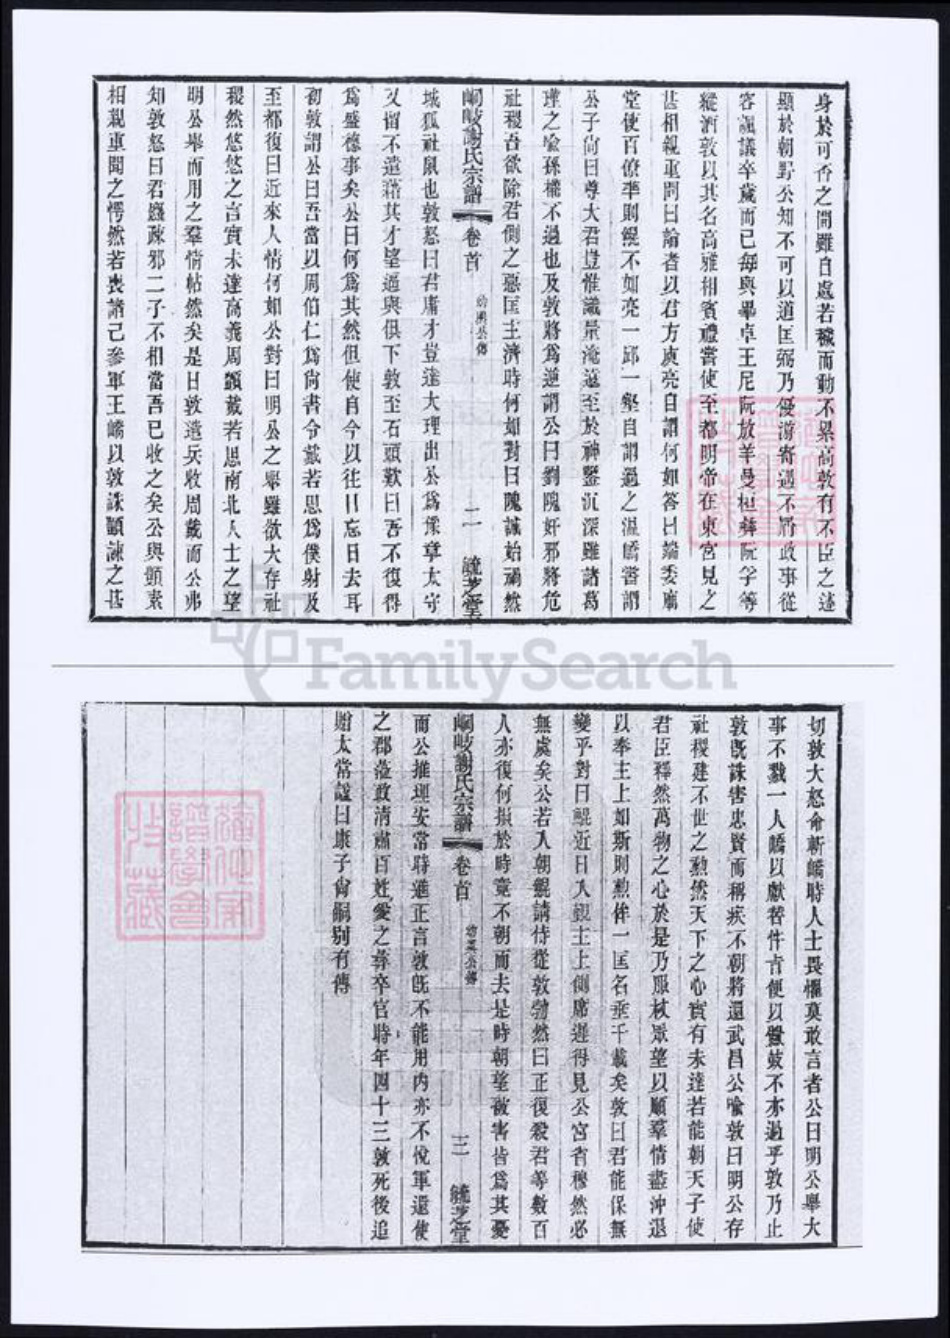 身於可否之間雖自處若穢而動不累高敦有不臣之迹
顯於朝野公知不可以道匡弼乃優游寄遇不屑政事從
容諷議卒歲而已每與畢卓王尼阮放羊曼桓彝阮孚等
縱酒敦以其名高雅相賓禮嘗使至都明帝在東宮見之
甚相親重問曰論者以君方庾亮自謂何如答曰端委廟
堂使百僚準則鯤不如亮一邱一壑自謂過之温嶠嘗謂
公子尙曰尊大君豈惟識量淹遠至於神鑒沉深雖諸葛
瑾之喻孫權不過也及敦將爲逆謂公曰劉隗奸邪將危
社稷吾欲除君側之惡匡主濟時何如對曰隗誠始禍然
峒岐謝氏宗譜 卷首 幼輿公傳 二 毓芝堂
城狐社鼠也敦怒曰君庸才豈達大理出公爲豫章太守
又留不遣藉其才望逼與俱下敦至石頭歎曰吾不復得
爲盛德事矣公曰何爲其然但使自今以往日忘日去耳
初敦謂公曰吾當以周伯仁爲尙書令戴若思爲僕射及
至都復曰近來人情何如公對曰明公之舉雖欲大存社
稷然悠悠之言實未達高義周顗戴若思南北人士之望
明公舉而用之羣情帖然矣是日敦遣兵收周戴而公弗
知敦怒曰君麤疎邪二子不相當吾已收之矣公與顗素
相親重聞之愕然若喪諸己參軍王嶠以敦誅顗諫之甚
切敦大怒命斬嶠時人士畏懼莫敢言者公曰明公舉大
事不戮一人嶠以獻替忤旨便以釁鼓不亦過乎敦乃止
敦旣誅害忠賢而稱疾不朝將還武昌公喻敦曰明公存
社稷建不世之勲然天下之心實有未達若能朝天子使
君臣釋然萬物之心於是乃服杖眾望以順羣情盡沖退
以奉主上如斯則勲侔一匡名垂千載矣敦曰君能保無
變乎對曰鯤近日入覲主上側席遲得見公宮省穆然必
無虞矣公若入朝鯤請侍從敦勃然曰正復殺君等數百
人亦復何損於時竟不朝而去是時朝望被害皆爲其憂
峒岐謝氏宗譜 卷首 幼輿公傳 三 毓芝堂
而公推理安常時進正言敦旣不能用内亦不悅軍還使
之郡涖政清肅百姓愛之尋卒官時年四十三敦死後追
贈太常諡曰康子尙嗣别有傳
FamilySearch